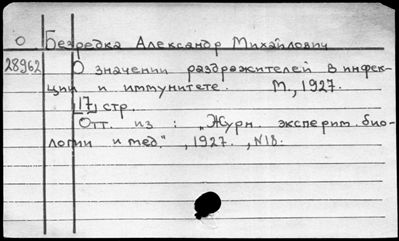 О Безредка Александр Михайлович
28962 О значении раздражителей в инфек-
ции и иммунитете. М., 1927.
[17] стр.
Отт. из: „Журн. эксперим. био-
логии и мед.", 1927., N18.